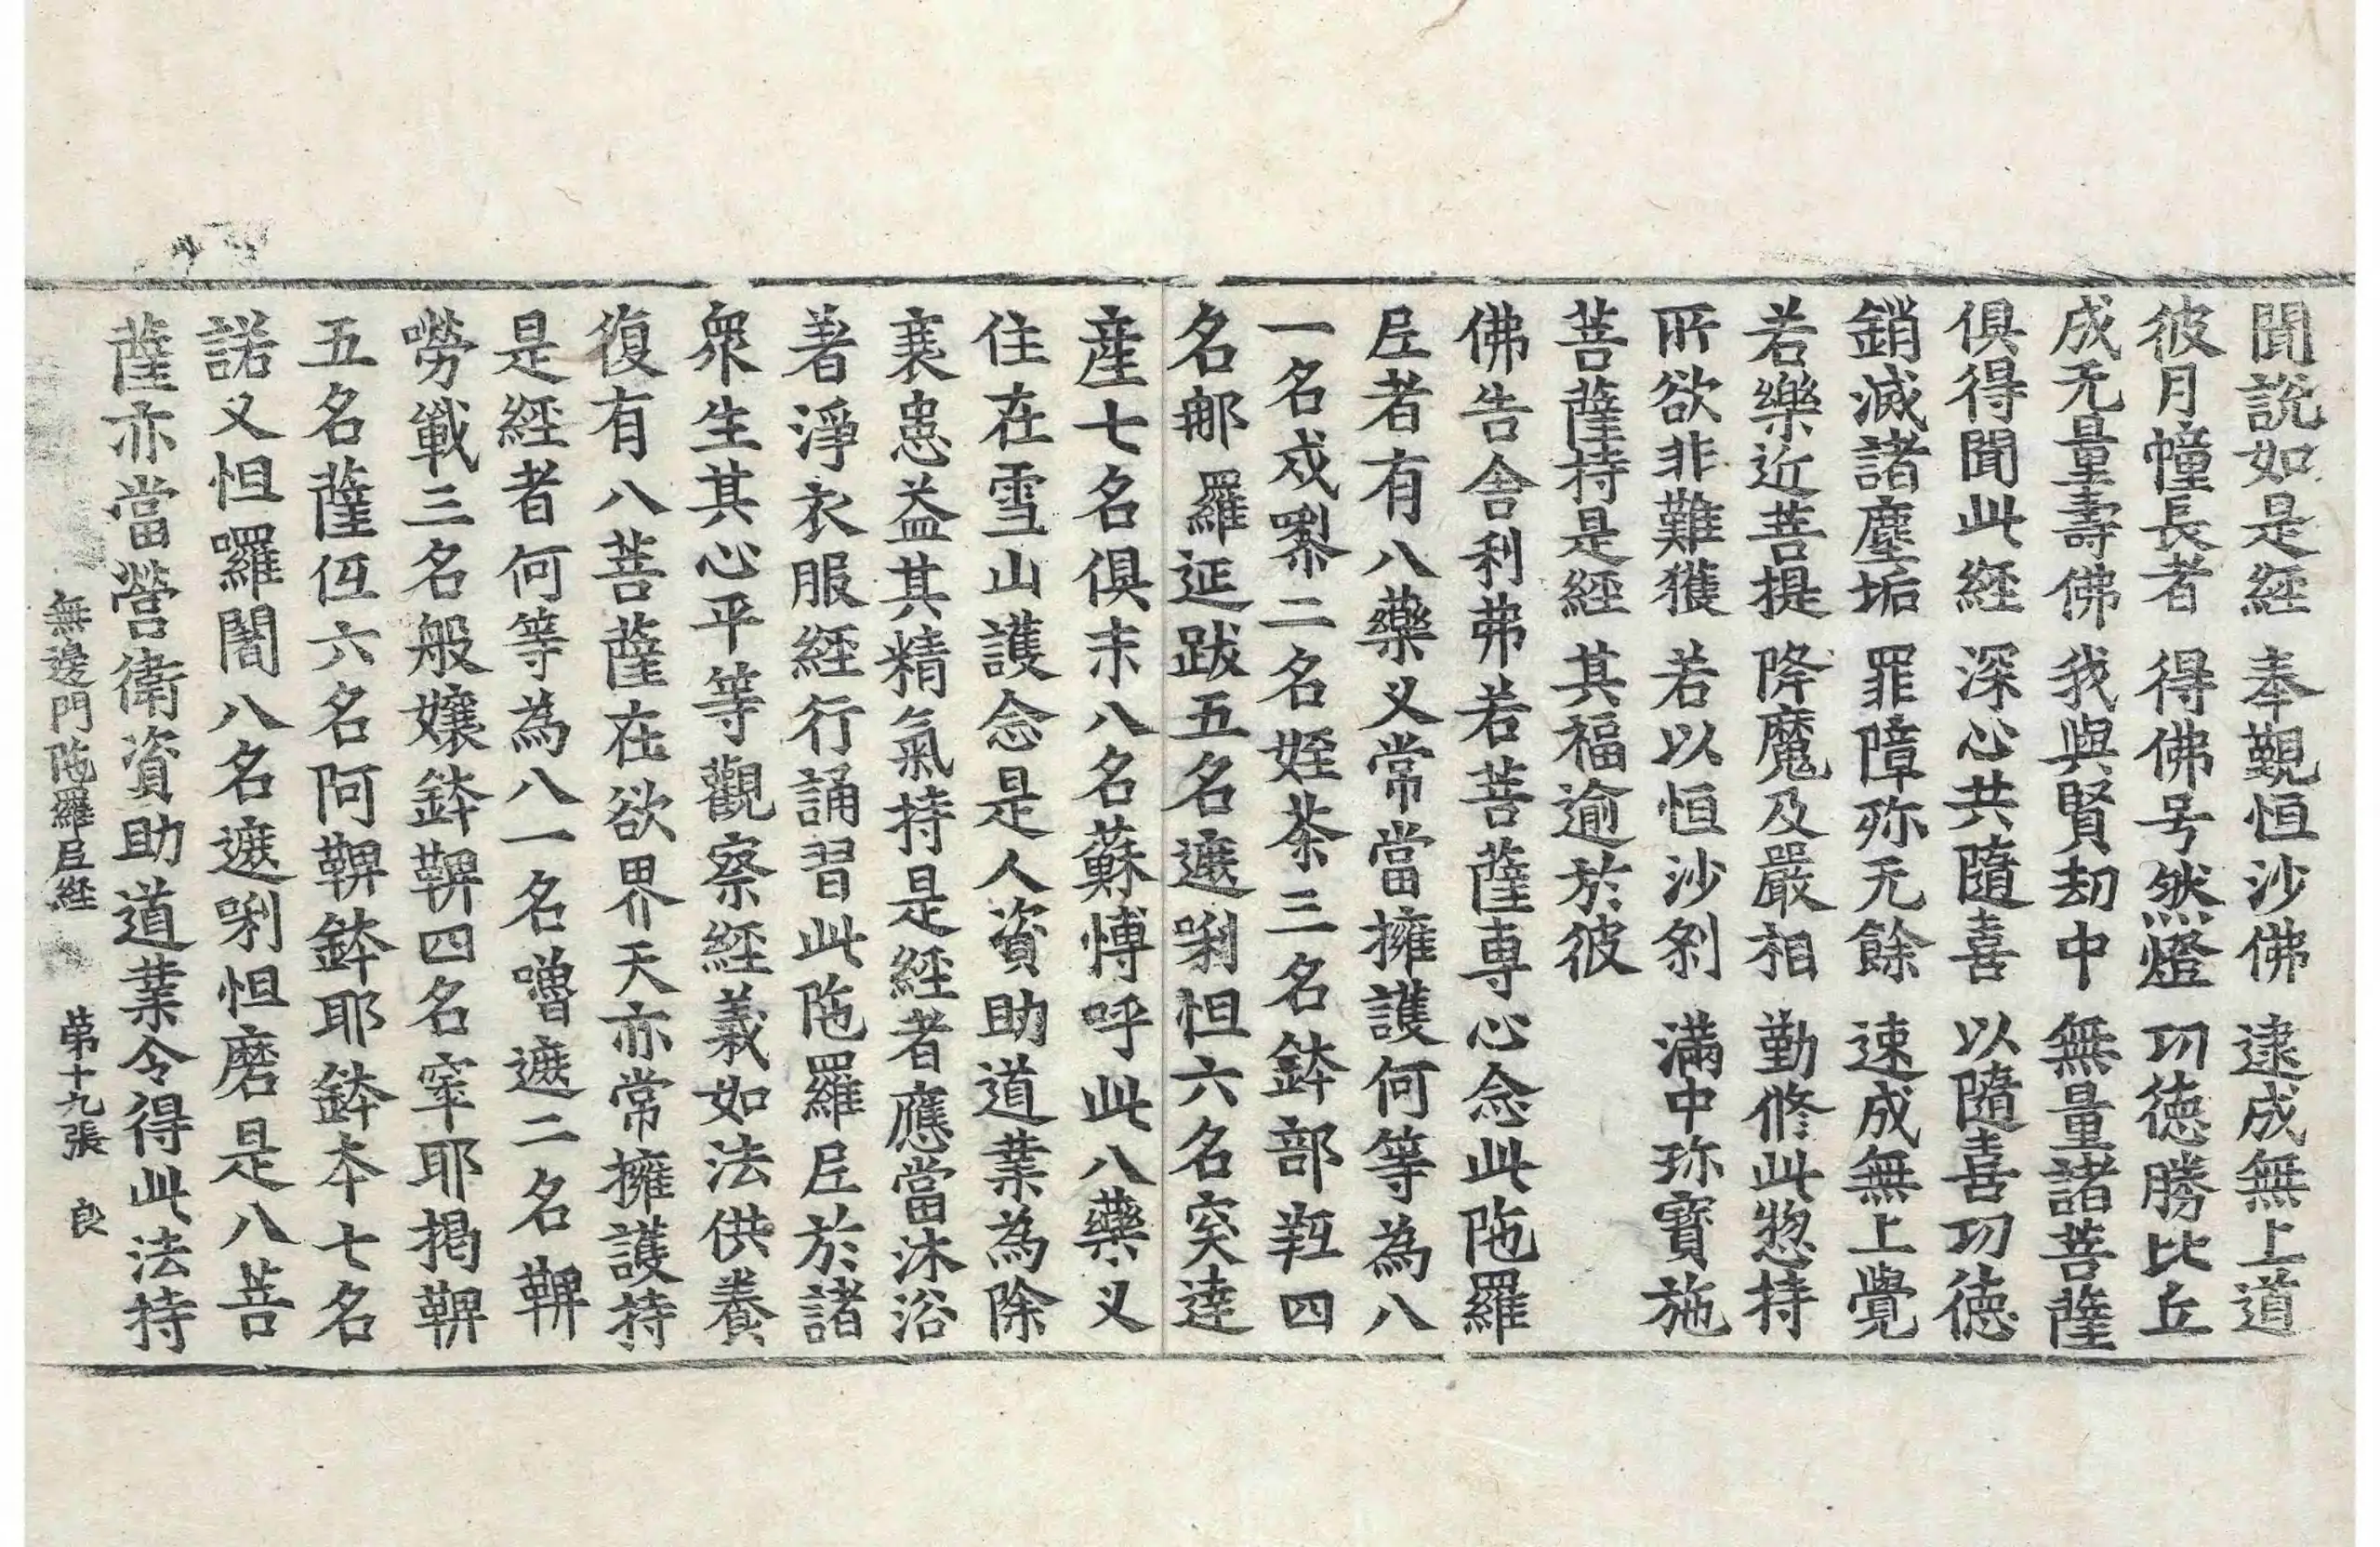 聞說如是経 奉覲恒沙佛 逮成無上道
彼月幢長者 得佛号然燈 㓛徳勝比丘
成无量壽佛 我與賢刼中 無量諸菩薩
俱得聞此経 深心共隨喜 以隨喜㓛徳
銷滅諸塵垢 罪障弥无餘 速成無上覺
若樂近菩提 降魔及嚴相 勤修此惣持
所欲非難獲 若以恒沙剎 滿中珎寶施
菩薩持是経 其福逾於彼
佛告舍利弗若菩薩專心念此陁羅
尼者有八藥义常當擁護何等為八
一名戍㗚二名姪茶三名鉢部䩭四
名那羅延跋五名遮唎怛六名窒達
産七名俱末八名蘇愽呼此八藥义
住在雪山護念是人資助道業為除
衰患益其精氣持是經者應當沐浴
著淨衣服經行誦習此陁羅尼於諸
衆生其心平等觀察經義如法供養
復有八菩薩在欲界天亦常擁護持
是經者何等為八一名嚕遮二名鞞
嘮戰三名般孃鉢鞞四名窣耶揭鞞
五名薩伍六名阿鞞鉢耶鉢夲七名
諾义怛囉闇八名遮唎怛磨是八菩
薩亦當營衛資助道業令得此法持
無邊門陁羅尼経 第十九張 良